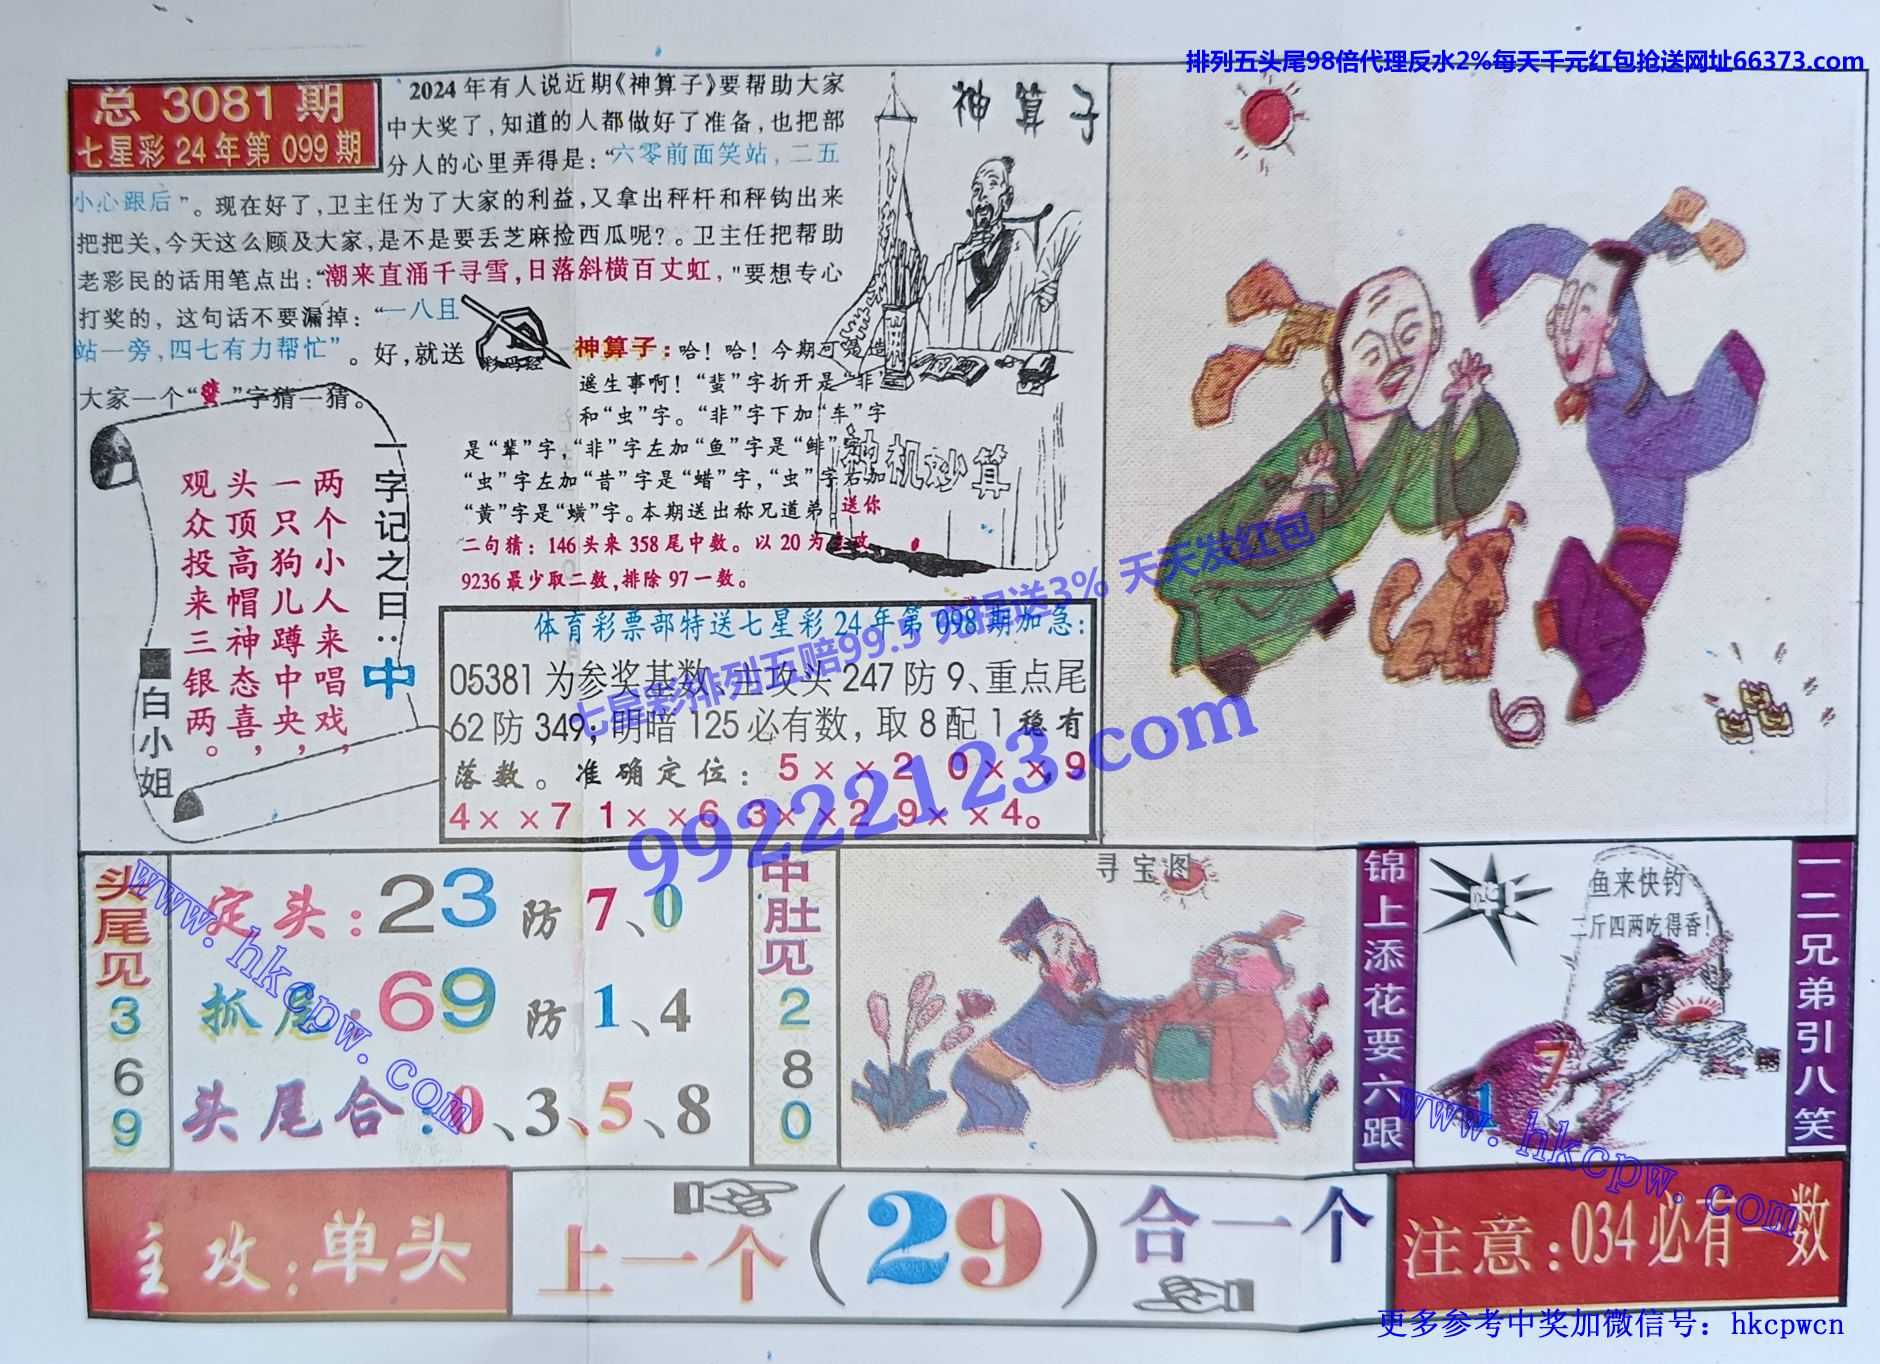 排列五头尾98倍代理反水2%每天千元红包抢送网址66373.com
总 3081 期
七星彩 24 年第 099 期
2024 年有人说近期《神算子》要帮助大家
中大奖了，知道的人都做好了准备，也把部
分人的心里弄得是：“六零前面笑站，二五
小心跟后”。现在好了，卫主任为了大家的利益，又拿出秤杆和秤钩出来
把把关，今天这么顾及大家，是不是要丢芝麻捡西瓜呢？。卫主任把帮助
老彩民的话用笔点出：“潮来直涌千寻雪，日落斜横百丈虹，"要想专心
打奖的，这句话不要漏掉：“一八且
站一旁，四七有力帮忙”。好，就送
大家一个“蜚”字猜一猜。
神算子
彩码经
神算子：哈！哈！今期可是造
遥生事啊！“蜚”字折开是“非”
和“虫”字。“非”字下加“车”字
是“辈”字，“非”字左加“鱼”字是“鲱”字，
“虫”字左加“昔”字是“蜡”字，“虫”字右加
“黄”字是“蟥”字。本期送出称兄道弟：送你
二句猜：146 头来 358 尾中数。以 20 为主攻
9236 最少取二数，排除 97 一数。
神机妙算
一字记之曰：中
两个小人来唱戏，
一只狗儿蹲中央，
头顶高帽神态喜，
观众投来三银两。
白小姐
体育彩票部特送七星彩 24 年第 098 期加急：
05381 为参奖基数、主攻头 247 防 9、重点尾
62 防 349；明暗 125 必有数，取 8 配 1 稳有
落数。准确定位：5××2 0××9
4××7 1××6 3××2 9××4。
七星彩排列五赔99.5 充提送3% 天天发红包
99222123.com
头尾见369
定头：23 防 7、0
抓尾：69 防 1、4
头尾合：0、3、5、8
www.hkcpw.com
中肚见280
寻宝图
锦上添花要六跟
鱼来快钓
二斤四两吃得香！
1 7
一二兄弟引八笑
www.hkcpw.com
主攻：单头
上一个（29）合一个
注意：034 必有一数
更多参考中奖加微信号：hkcpwcn